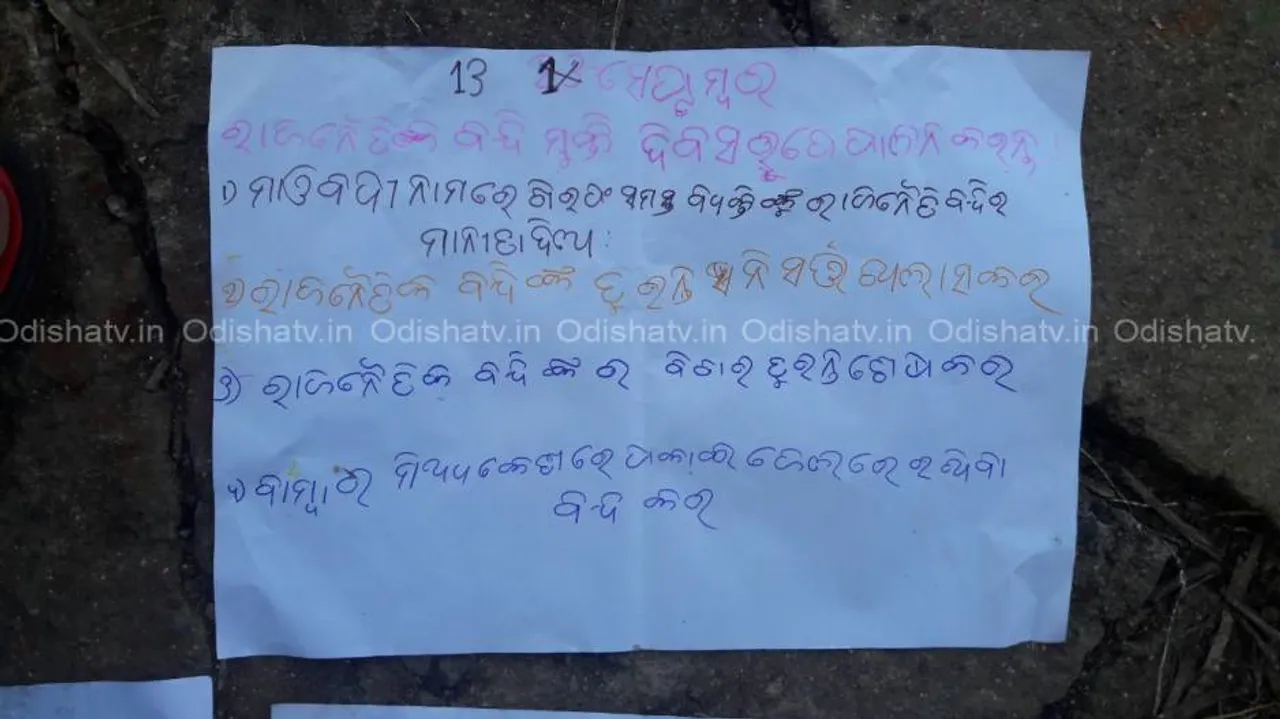 13 ସେପ୍ଟେମ୍ବର
ରାଜନୈତିକ ବନ୍ଦି ମୁକ୍ତି ଦିବସ ରୂପେ ପାଳନ କରନ୍ତୁ
୧) ମାଓବାଦୀ ନାମରେ ଗିରଫ ସମସ୍ତ ବ୍ୟକ୍ତିଙ୍କୁ ରାଜନୈତି ବନ୍ଦିର
ମାନ୍ୟତା ଦିଅ
୨) ରାଜନୈତିକ ବନ୍ଦିଙ୍କ ତୁରନ୍ତ ନିସର୍ତ୍ତ ଖଲାସ କର
Odishatv.in Odishatv.in Odishatv.in Odishatv.in Odishatv.in Odishatv.in Odishatv.
୩) ରାଜନୈତିକ ବନ୍ଦିଙ୍କ ର ବିଚାର ତୁରନ୍ତ ଶେଷ କର
୪) ବାମ୍ବାର ମିଥ୍ୟା କେଶରେ ପକାଇ ଜେଲରେ ରଖିବା
ବନ୍ଦ କର